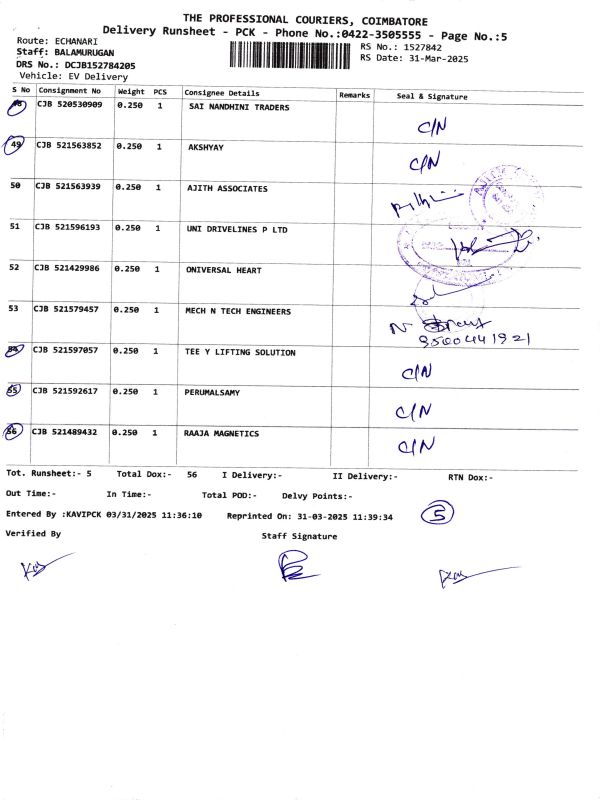 THE PROFESSIONAL COURIERS, COIMBATORE
Delivery Runsheet - PCK - Phone No.:0422-3505555 - Page No.:5
Route: ECHANARI
RS No.: 1527842
Staff: BALAMURUGAN
RS Date: 31-Mar-2025
DRS No.: DCJB152784205
Vehicle: EV Delivery
S No Consignment No Weight PCS Consignee Details Remarks Seal & Signature
48 CJB 520530909 0.250 1 SAI NANDHINI TRADERS
C/N
49 CJB 521563852 0.250 1 AKSHYAY
C/N
50 CJB 521563939 0.250 1 AJITH ASSOCIATES
51 CJB 521596193 0.250 1 UNI DRIVELINES P LTD
52 CJB 521429986 0.250 1 ONIVERSAL HEART
53 CJB 521579457 0.250 1 MECH N TECH ENGINEERS
9500441921
54 CJB 521597057 0.250 1 TEE Y LIFTING SOLUTION
C/N
55 CJB 521592617 0.250 1 PERUMALSAMY
C/N
56 CJB 521489432 0.250 1 RAAJA MAGNETICS
C/N
Tot. Runsheet:- 5 Total Dox:- 56 I Delivery:- II Delivery:- RTN Dox:-
Out Time:- In Time:- Total POD:- Delvy Points:-
Entered By :KAVIPCK 03/31/2025 11:36:10 Reprinted On: 31-03-2025 11:39:34 5
Verified By Staff Signature